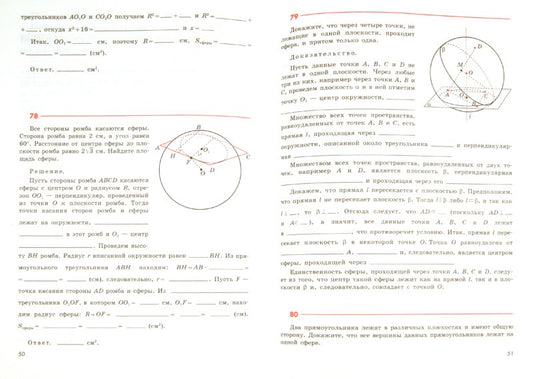 треугольников AO₁O и CO₂O получаем R² = ___ + ___ и R² = ___
+ ___, откуда x² + 16 = ___ и x = ___
Итак, OO₁ = ___ см, поэтому R = ___ см, Sсферы = ___
___ (см²).
Ответ. ___ см².
78
Все стороны ромба касаются сферы.
Сторона ромба равна 2 см, а угол равен
60°. Расстояние от центра сферы до пло-
скости ромба равно 2√3 см. Найдите
площадь сферы.
Решение.
Пусть стороны ромба ABCD касаются
сферы с центром O и радиусом R, отре-
зок OO₁ — перпендикуляр, проведенный
из точки O к плоскости ромба. Тогда
точки касания сторон ромба и сферы
лежат на окружности, ___
___ в этот ромб и O₁ — центр
___. Проведем высо-
ту BH ромба. Радиус r вписанной окружности равен ___ BH. Из пря-
моугольного треугольника ABH находим: BH = AB · ___ =
= ___ = ___ (см), следовательно, r = ___. Пусть F —
точка касания стороны AD ромба и сферы. Из ___
треугольника O₁OF, в котором OO₁ = ___ см, O₁F = ___ см, нахо-
дим радиус сферы: R = OF = ___ = ___ (см).
Sсферы = ___ = ___ = ___ (см²).
Ответ. ___ см².
50
B
A
H
F
D
C
O₁
O
79
Докажите, что через четыре точки, не
лежащие в одной плоскости, проходит
сфера, и притом только одна.
Доказательство.
Пусть данные точки A, B, C и D не
лежат в одной плоскости. Через любые
три из них, например через точки A, B и
C, проведем плоскость α и в ней отметим
точку O₁ — центр окружности, ___
Множество всех точек пространства,
равноудаленных от точек A, B и C, есть
прямая l, проходящая через ___
окружности, описанной около треугольника ___ и перпендикуляр-
ная ___
Множеством всех точек пространства, равноудаленных от двух то-
чек, например A и D, является плоскость β, перпендикулярная
___ и проходящая через его ___
Докажем, что прямая l пересекается с плоскостью β. Предположим,
что прямая l не пересекает плоскость β. Тогда l ∥ β либо l ⊂ β, и так как
l ___, то β ___. Отсюда следует, что AD ___ (поскольку AD ___
и A ___), а значит, все данные точки A, B, C и D лежат
в ___, что противоречит условию. Итак, прямая l пере-
секает плоскость β в некоторой точке O. Точка O равноудалена от
___ A, ___ и, следовательно, является центром
сферы, проходящей через ___
Единственность сферы, проходящей через точки A, B, C и D, следу-
ет из того, что центр такой сферы лежит как на прямой l, так и в пло-
скости β и, следовательно, совпадает с точкой O.
80
Два прямоугольника лежат в различных плоскостях и имеют общую
сторону. Докажите, что все вершины данных прямоугольников лежат на
одной сфере.
51
D
O
M
A
C
B